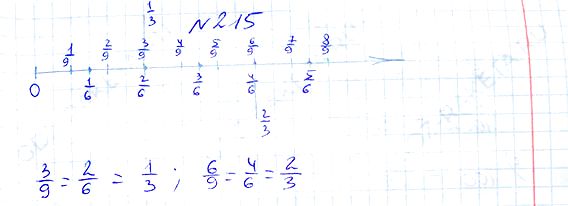 1/3
№215
1/9 2/9 3/9 4/9 5/9 6/9 7/9 8/9
0 1/6 2/6 3/6 4/6 5/6
2/3
3/9 = 2/6 = 1/3 ; 6/9 = 4/6 = 2/3